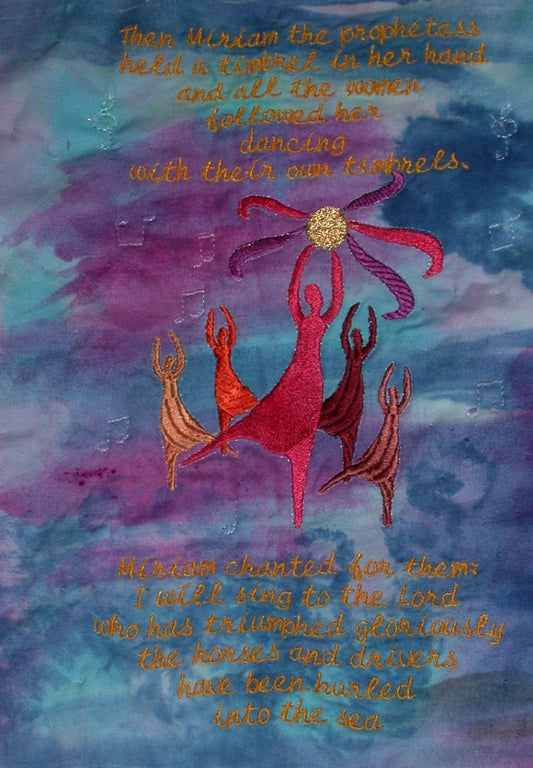 Then Miriam the prophetess
held a timbrel in her hand
and all the women
followed her
dancing
with their own timbrels.
Miriam chanted for them:
I will sing to the Lord
who has triumphed gloriously
the horses and drivers
have been hurled
into the sea